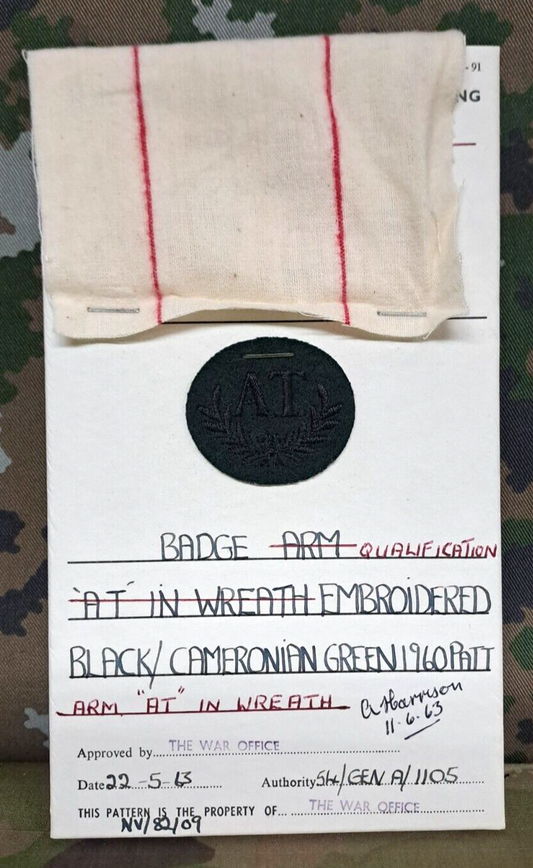 - 91
NG
AT
BADGE ARM QUALIFICATION
"AT" IN WREATH EMBROIDERED
BLACK/ CAMERONIAN GREEN 1960 PATT
ARM "AT" IN WREATH
A Harrison
11-6-63
Approved by THE WAR OFFICE
Date 22-5-63 Authority 54/GEN A/1105
THIS PATTERN IS THE PROPERTY OF THE WAR OFFICE
NV/82/09